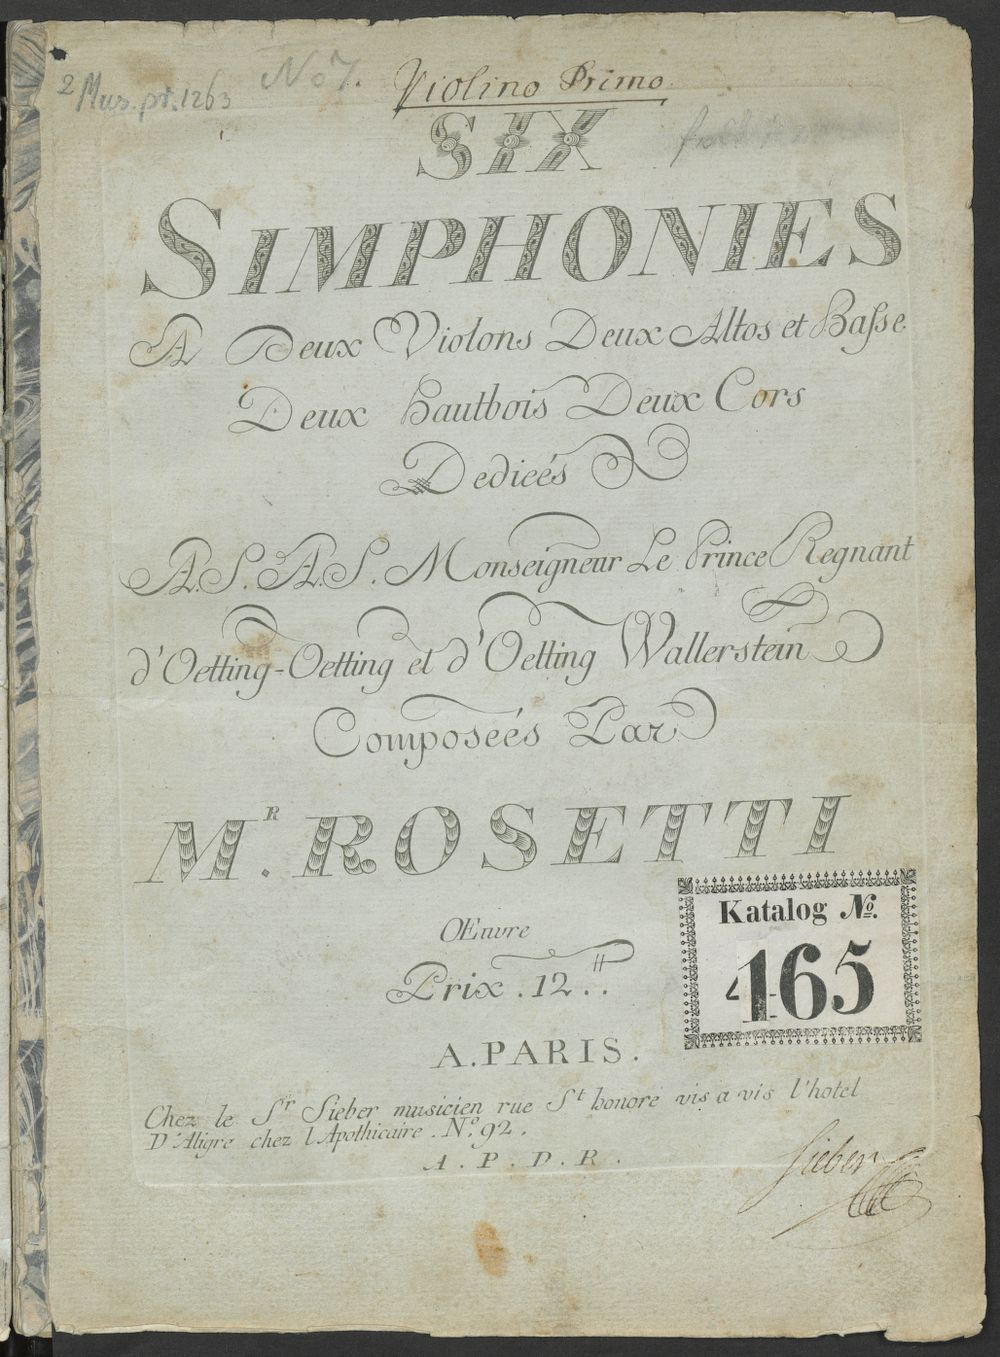 2 Mus. pr. 1263
No 7.
Violino Primo
SIX
SIMPHONIES
A Deux Violons Deux Altos et Baſse
Deux hautbois Deux Cors
Dedieés
A.S.A.S. Monseigneur Le Prince Regnant
d'Oetting-Oetting et d'Oetting Wallerstein
Composeés Par
M.R ROSETTI
Œuvre
Prix .12.tt
Katalog No.
465
A. PARIS.
Chez le Sr Sieber musicien rue St honoré vis a vis l'hotel
D'Aligre chez l'Apothicaire. No. 92.
A. P. D. R.
Sieber